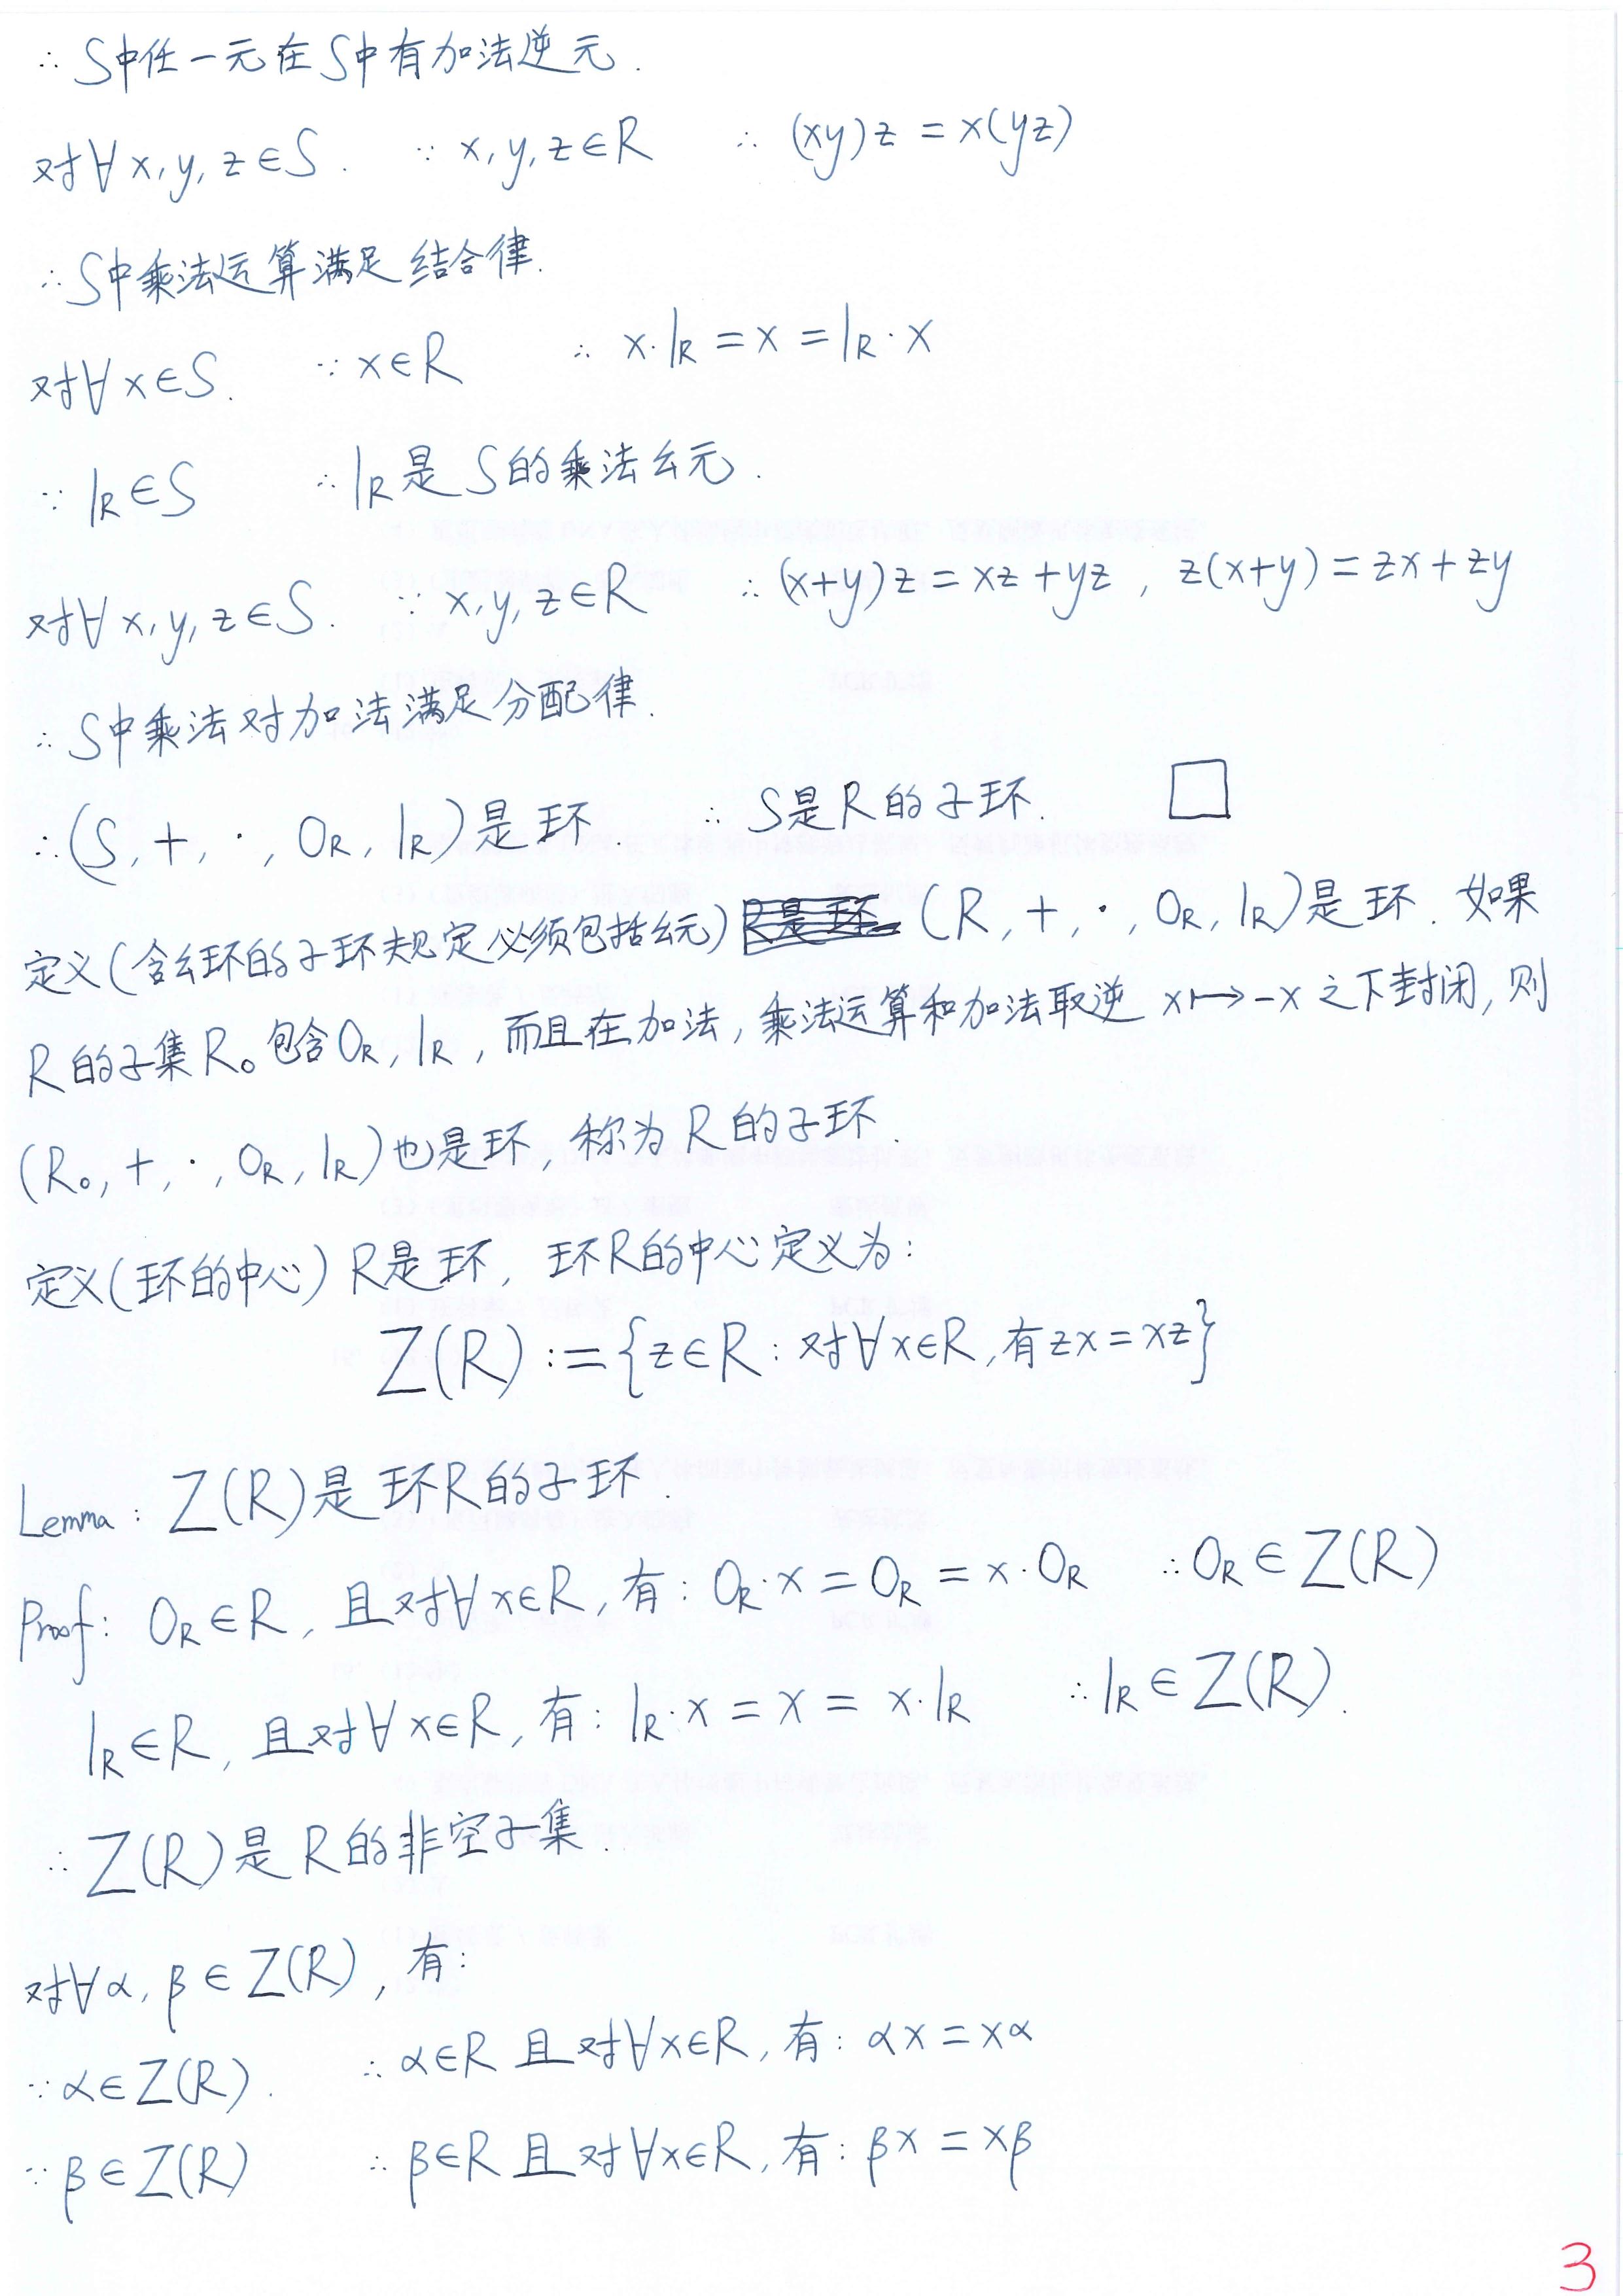 ∴ S中任一元在S中有加法逆元.
对∀x,y,z∈S. ∵ x,y,z∈R ∴ (xy)z = x(yz)
∴ S中乘法运算满足结合律.
对∀x∈S. ∵ x∈R ∴ x·1_R = x = 1_R·x
∵ 1_R∈S ∴ 1_R是S的乘法幺元.
对∀x,y,z∈S. ∵ x,y,z∈R ∴ (x+y)z = xz+yz, z(x+y) = zx+zy
∴ S中乘法对加法满足分配律.
∴ (S, +, ·, 0_R, 1_R)是环. ∴ S是R的子环. □
定义(含幺环的子环规定必须包括幺元) R是环. (R, +, ·, 0_R, 1_R)是环. 如果
R的子集R₀包含0_R, 1_R, 而且在加法, 乘法运算和加法取逆 x↦-x 之下封闭, 则
(R₀, +, ·, 0_R, 1_R)也是环, 称为R的子环.
定义(环的中心) R是环, 环R的中心定义为:
Z(R) := {z∈R : 对∀x∈R, 有zx = xz}
Lemma: Z(R)是环R的子环.
Proof: 0_R∈R, 且对∀x∈R, 有: 0_R·x = 0_R = x·0_R ∴ 0_R∈Z(R)
1_R∈R, 且对∀x∈R, 有: 1_R·x = x = x·1_R ∴ 1_R∈Z(R).
∴ Z(R)是R的非空子集.
对∀α, β∈Z(R), 有:
∵ α∈Z(R). ∴ α∈R 且对∀x∈R, 有: αx = xα
∵ β∈Z(R) ∴ β∈R 且对∀x∈R, 有: βx = xβ
3